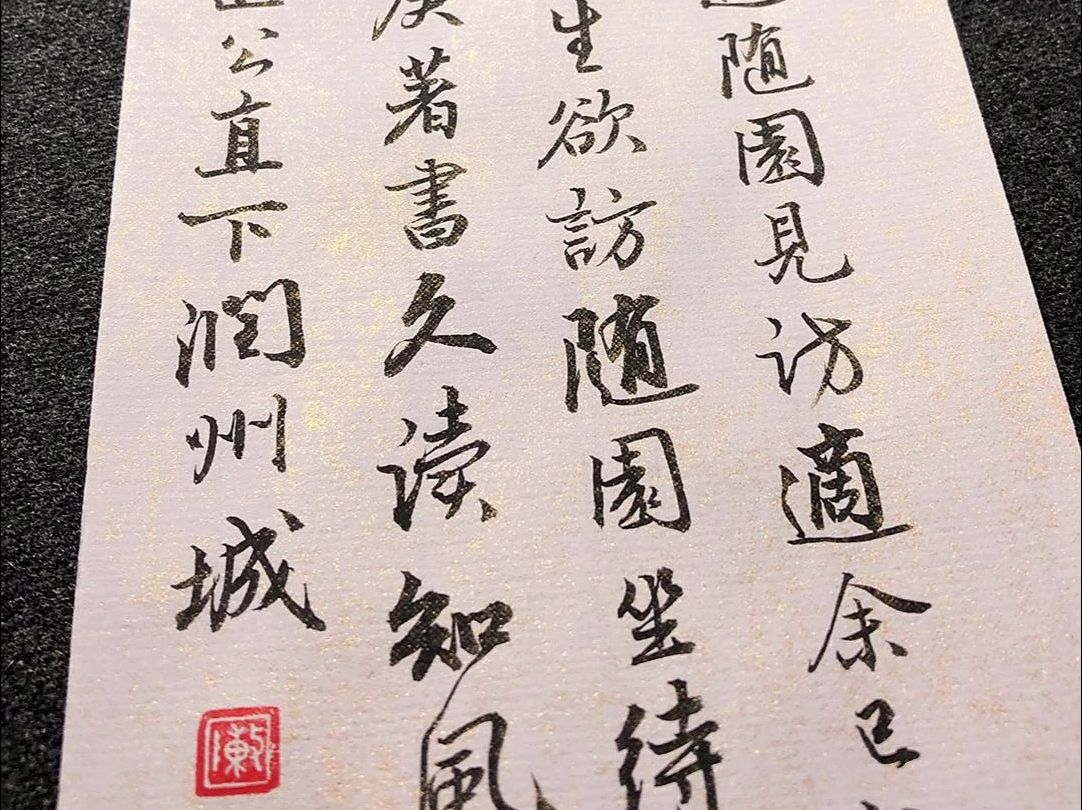 随園見访適余已
生欲訪随園坐待
著書久读知風
公直下润州城